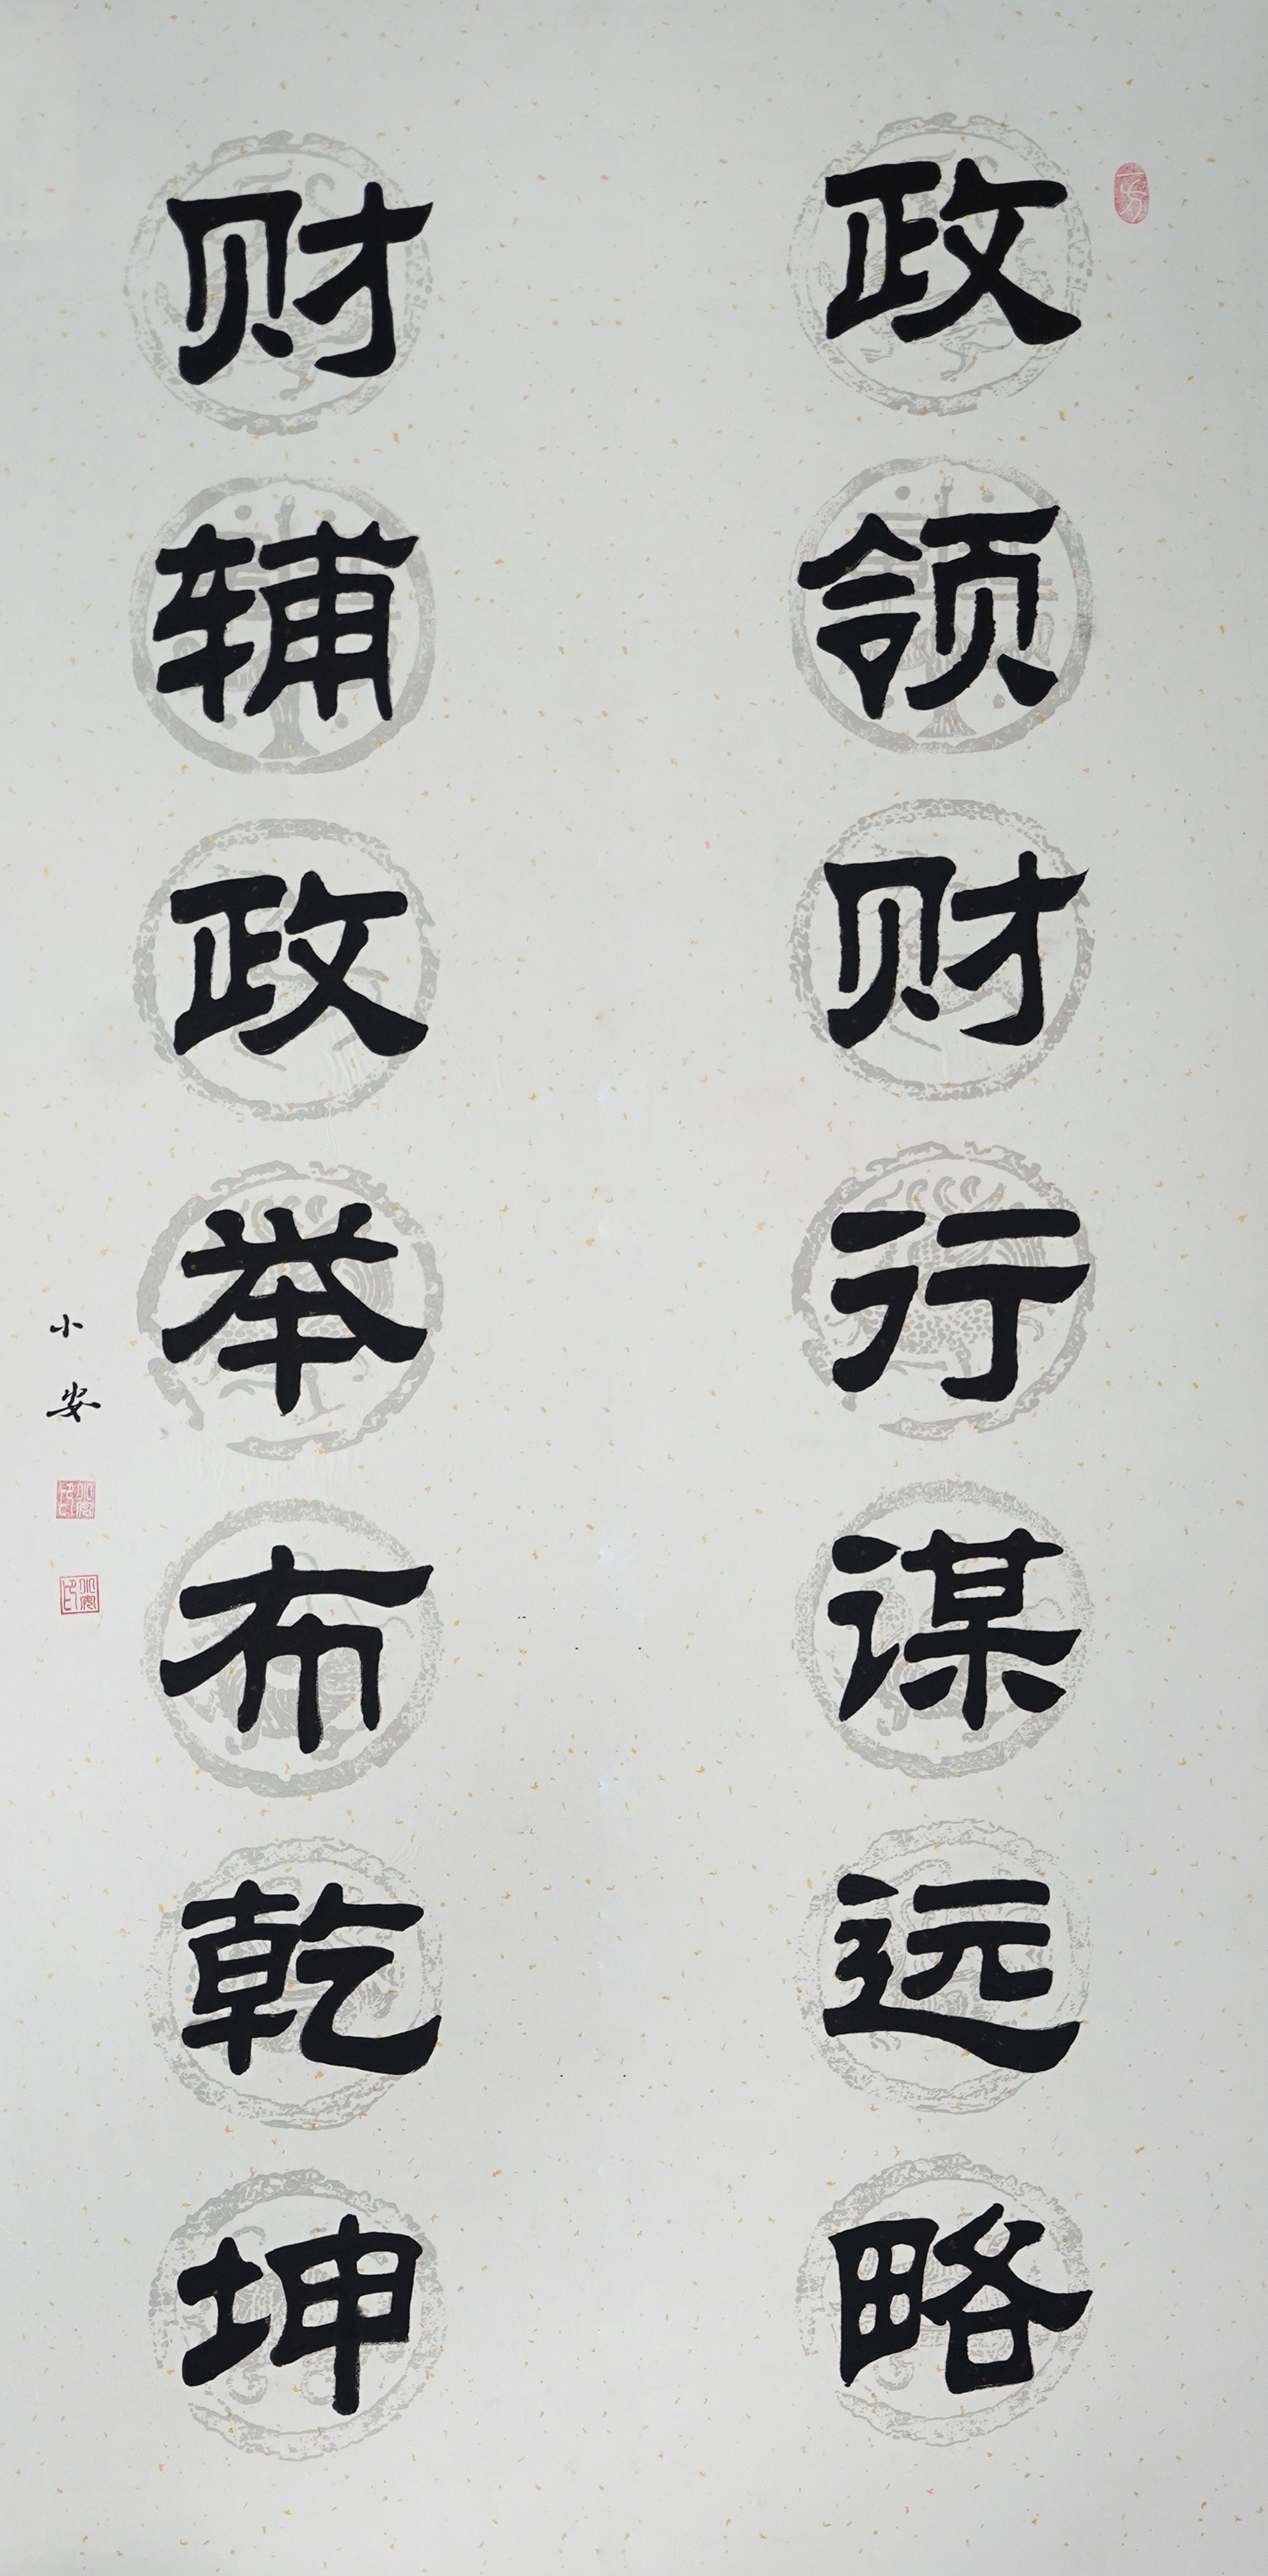 政领财行谋远略
财辅政举布乾坤
小安